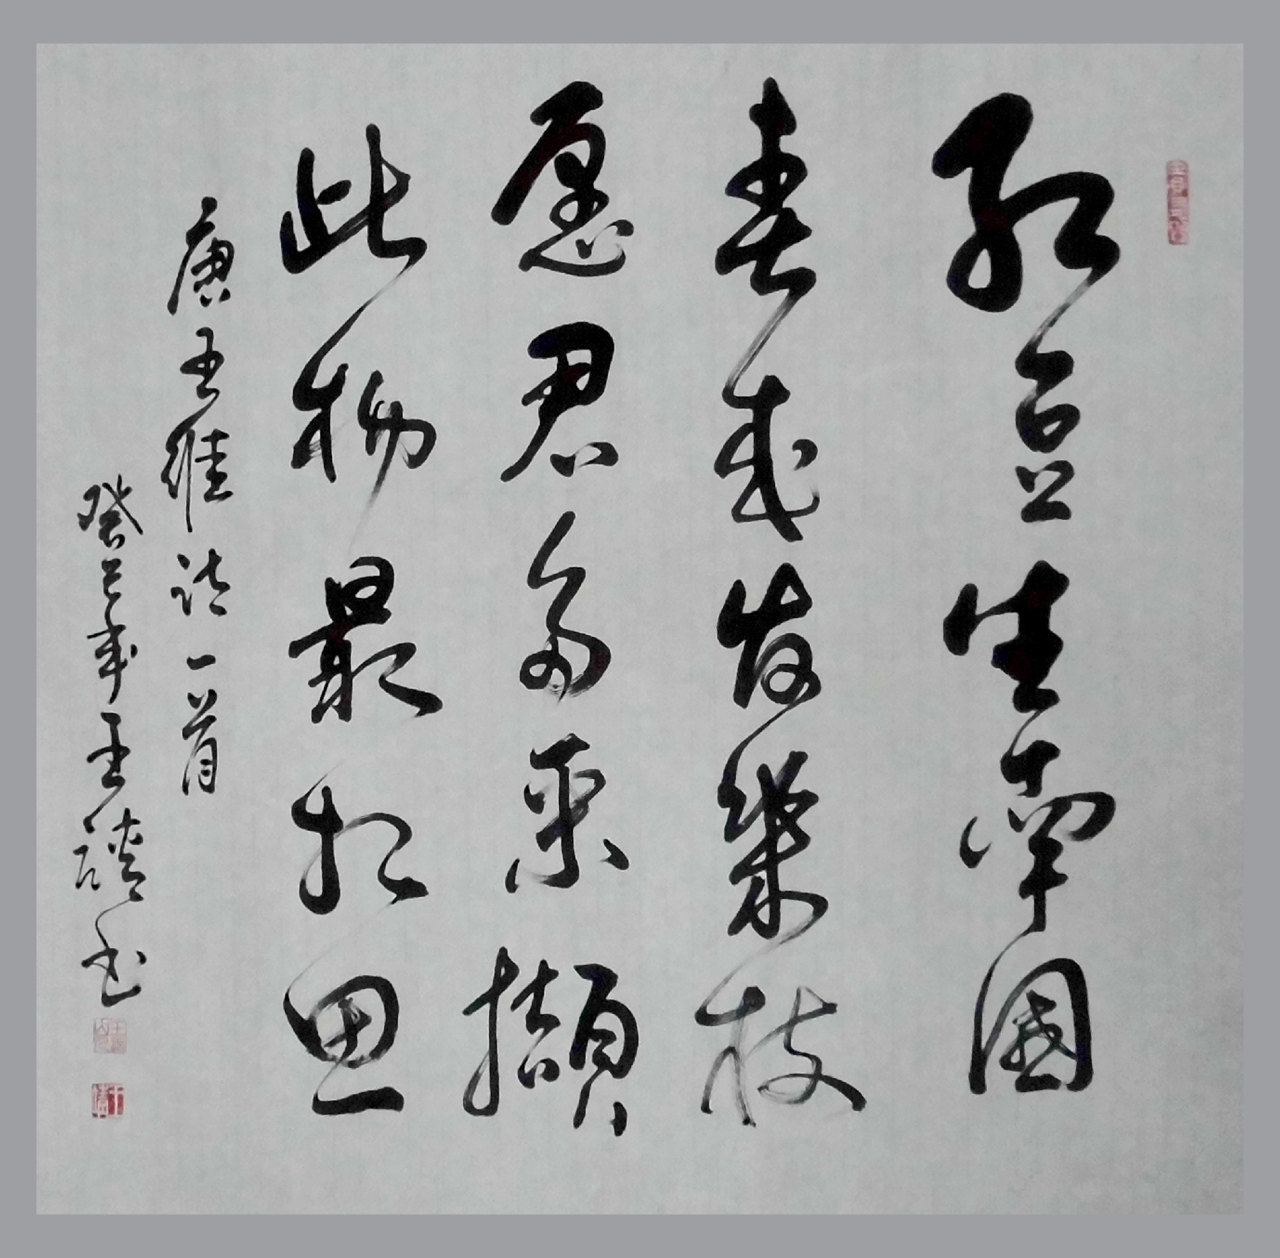 红豆生南國
春来发幾枝
愿君多采擷
此物最相思
唐王維诗一首
癸巳年王讀书